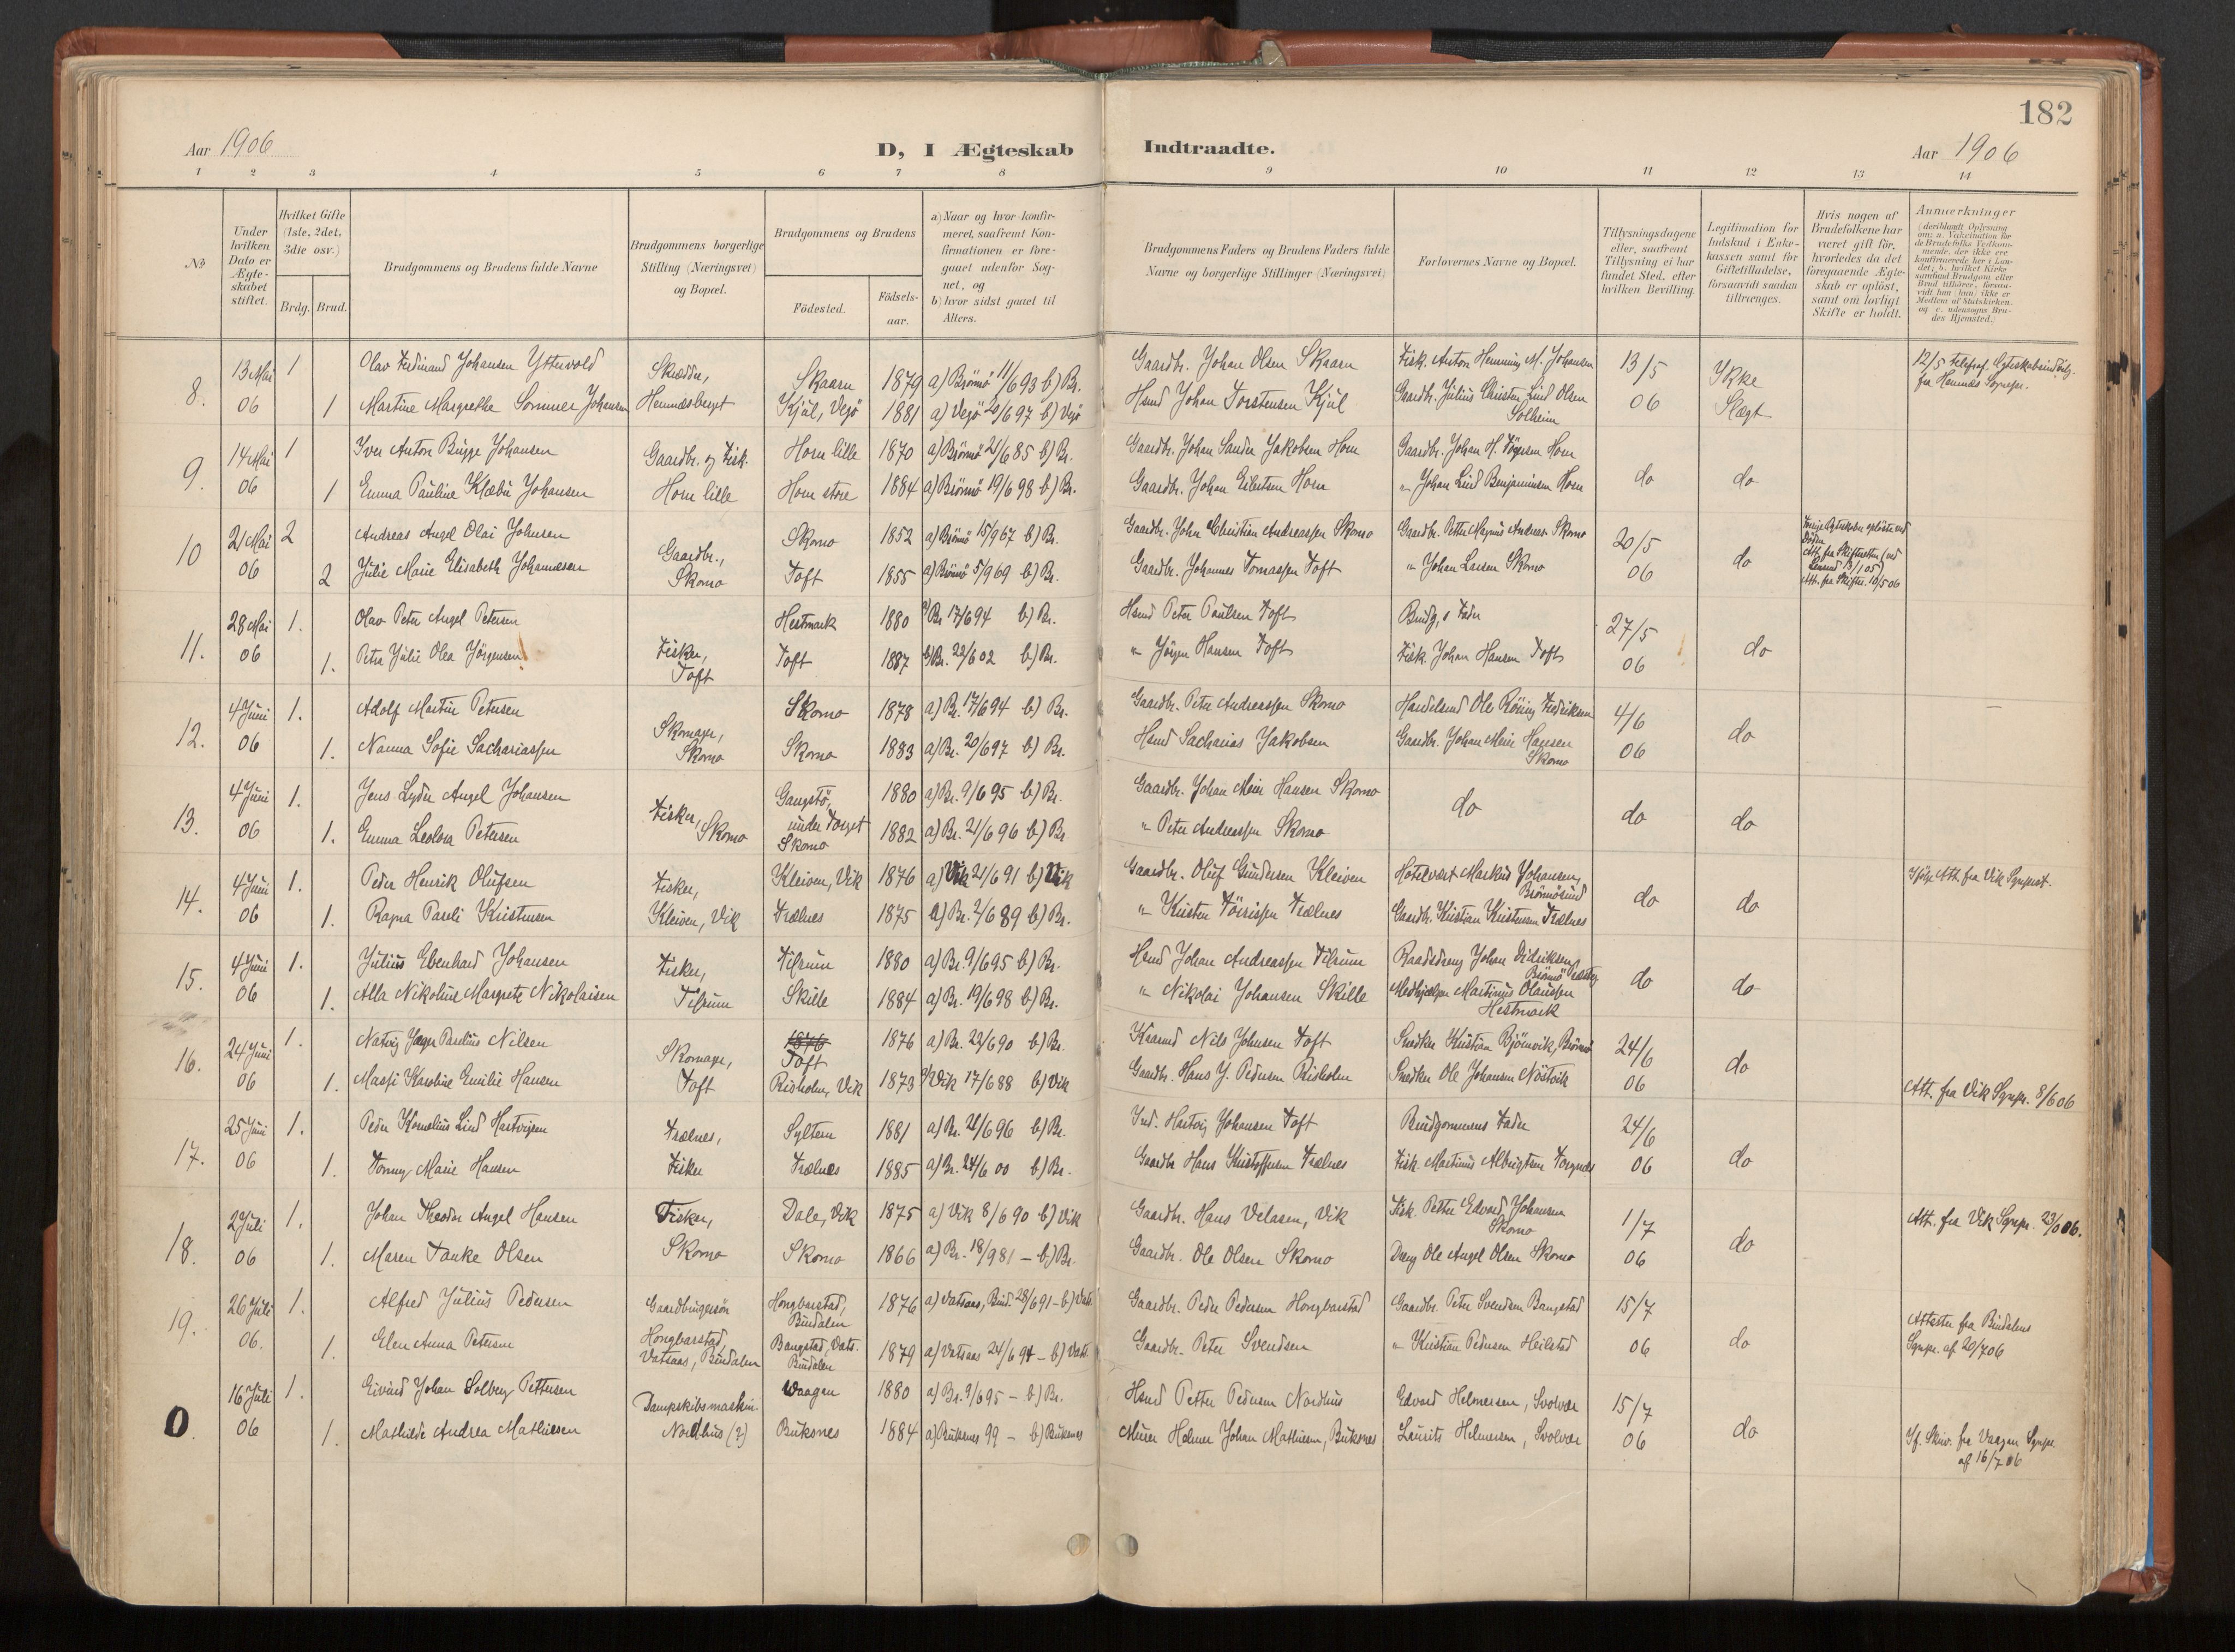 182
Aar 1906
D, I Ægteskab Indtraadte.
Aar 1906
1 2 3 4 5 6 7 8 9 10 11 12 13 14
No
Under hvilken Dato er Ægteskabet stiftet.
Hvilket Gifte (1ste, 2det, 3die osv.)
Brdg. Brud.
Brudgommens og Brudens fulde Navne
Brudgommens borgerlige Stilling (Næringsvei) og Bopæl.
Brudgommens og Brudens
Födested.
Födsels-aar.
a) Naar og hvor konfirmeret, saafremt Konfirmationen er foregaaet udenfor Sognet, og
b) hvor sidst gaaet til Alters.
Brudgommens Faders og Brudens Faders fulde Navne og borgerlige Stillinger (Næringsvei)
Forlovernes Navne og Bopæl.
Tillysningsdagene eller, saafremt Tillysning ei har fundet Sted, efter hvilken Bevilling.
Legitimation for Indskud i Enkekassen samt for Giftetilladelse, forsaavidt saadan tiltrænges.
Hvis nogen af Brudefolkene har været gift för, hvorledes da det foregaaende Ægteskab er oplöst, samt om lovligt Skifte er holdt.
Anmerkninger (deriblandt Oplysning om: a. Vakcination for de Brudefolks Vedkommende, der ikke ere konfirmerede her i Landet; b. hvilket Kirkesamfund Brudgom eller Brud tilhörer, forsaavidt han (hun) ikke er Medlem af Statskirken, og c. udensogns Brudes Hjemsted.)
8. 13 Mai 06 1 Olav Ferdinand Johansen Yttervold Skrædder, Skaarn 1879 a) Brönnö 11/6 93 b) Br. Gaardbr. Johan Olsen Skaarn Fisk. Anton Henning M. Johansen 13/5 06 Ykke Slægt
1 Martine Margrethe Sommer Johansen Hemnesberget Kjul, Vegö 1881 a) Vegö 20/6 97 b) Vegö Hsmd Johan Torstensen Kjul Gaardbr. Julius Christen Lind Olsen Solheim
9. 14 Mai 06 1 Iver Anton Bugge Johansen Gaardbr. og Fisk. Horn lille 1870 a) Brönnö 21/6 85 b) Br. Gaardbr. Johan Sander Jakobsen Horn Gaardbr. Johan H. Horn do do
1 Emma Pauline Klæbu Johansen Horn lille Horn store 1884 a) Brönnö 19/6 98 b) Br. Gaardbr. Johan Eilertsen Horn " Johan Lind Benjaminsen Horn
10 21 Mai 06 2 Andreas Angel Olai Johnsen Gaardbr., Skomo 1852 a) Brönnö 15/9 67 b) Br. Gaardbr. John Christian Andreassen Skomo Gaardbr. Petter Magnus Andreas. Skomo 20/5 06 do
2 Julie Marie Elisabeth Johannesen Skomo Toft 1855 a) Brönnö 5/9 69 b) Br. Gaardbr. Johannes Tomassen Toft " Johan Larsen Skomo
11. 28 Mai 06 1. Olav Peter Angel Petersen Fisker, Hestmark 1880 a) Br 17/6 94 b) Br. Hsmd Peter Paulsen Toft Brudg,s Fader 27/5 06 do
1. Petra Julie Olea Jörgensen Toft Toft 1887 a) Br. 22/6 02 b) Br. " Jörgen Hansen Toft Fisk. Johan Hansen Toft
12. 4 Juni 06 1. Adolf Martin Petersen Skomager, Skomo 1878 a) Br. 17/6 94 b) Br. Gaardbr. Peter Andreassen Skomo Handelsmd Ole Röning Fredriksen 4/6 06 do
1. Nanna Sofie Sachariassen Skomo Skomo 1883 a) Br. 20/6 97 b) Br. Hsmd Sacharias Jakobsen Gaardbr. Johan Meier Hansen Skomo
13. 4 Juni 06 1. Jens Lyder Angel Johansen Fisker, Gangstö, under Torget 1880 a) Br. 9/6 95 b) Br. Gaardbr. Johan Meier Hansen Skomo do do do
1. Emma Petersen Skomo Skomo 1882 a) Br. 21/6 96 b) Br " Peter Andreassen Skomo
14. 4 Juni 06 1. Peder Henrik Olufsen Fisker, Kleiven, Vik 1876 a) Vik 21/6 91 b) Vik Gaardbr. Oluf Gundersen Kleiven Hotelvært Markus Johansen, Brönnösund do do Att. fra Vik
1. Ragna Pauli Kristensen Kleiven, Vik Trælnes 1875 a) Br. 2/6 89 b) Br. " Kristen Trælnes Gaardbr. Kristian Kristensen Trælnes
15. 4 Juni 06 1. Julius Ebenhard Johansen Fisker, Tilrum 1880 a) Br. 9/6 95 b) Br. Hsmd Johan Andreassen Tilrum Johan Didriksen, Brönnö do do
1. Alla Nikoline Margrete Nikolaisen Tilrum Skille 1884 a) Br. 19/6 98 b) Br. " Nikolai Johansen Skille Martinus Olaussen Hestmark
16. 24 Juni 06 1. Paulius Nilsen Skomager, 1876 Toft 1876 a) Br. 22/6 90 b) Br. Nils Johnsen Toft Snedker Kristian Björnvik, Brönnö 24/6 06 do
1. Massi Karoline Emilie Hansen Toft Risholm, Vik 1873 a) Vik 17/6 88 b) Vik Gaardbr. Hans J. Pedersen Risholm Snedker Ole Johansen Nöstvik Att. fra Vik Sgnpr. 8/6 06
17. 25 Juni 06 1. Peder Kornelius Lind Hartvigsen Trælnes, Syltern 1881 a) Br. 21/6 96 b) Br. Ind. Hartvig Johansen Toft Brudgommens Fader 24/6 06 do
1. Tonny Marie Hansen Fisker Trælnes 1885 a) Br. 24/6 00 b) Br. Gaardbr Hans Kristoffersen Trælnes Fisk. Martinus Albrigtsen Torgnes
18. 2 Juli 06 1. Johan Theodor Angel Hansen Fisker, Dale, Vik 1875 a) Vik 8/6 90 b) Vik Gaardbr. Hans Velasen, Vik Fisk. Petter Edvard Johansen Skomo 1/7 06 do Att. fra Vik Sgnpr. 23/6 06.
1. Maren Tanke Olsen Skomo Skomo 1866 a) Br. 18/9 81 - b) Br. Gaardbr. Ole Olsen Skomo Dreng Ole Angel Olsen Skomo
19. 26 Juli 06. 1. Alfred Julius Pedersen Gaardbrugersön Hongbarstad, Bindalen 1876 a) Vatsaas, Bind. 28/6 91 - b) Vats. Gaardbr. Peder Pedersen Hongbarstad Gaardbr. Peter Svendsen Bangstad 15/7 06 do Attester fra Bindalens Sgnpr. af 20/7 06
1. Elen Anna Petersen Hongbarstad, Vatsaas, Bindalen Bangstad, Vats. Bindalen 1879 a) Vatsaas 24/6 94 - b) Vats. Gaardbr. Peter Svendsen " Kristian Pedersen Heilstad
0. 16 Juli 06 1. Eivind Johan Solberg Pettersen Dampskibsmaskin. Waagan 1880 a) Br. 9/6 95 - b) Br. Hsmd Petter Pedersen Nordhus Edvard Helmersen, Svolvær 15/7 06 do
1. Mathilde Andrea Mathiesen Nordhus (?) Buksnes 1884 a) Buksnes 99 - b) Buksnes Murer Helmer Johan Mathiesen, Buksnes Laurits Helmersen, Svolvær If. Skriv. fra Vaagan Sgnpr. af 16/7 06